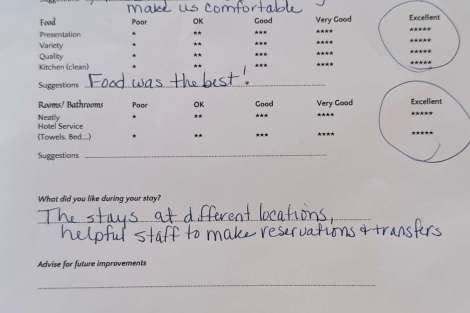 make us comfortable
Food Poor OK Good Very Good Excellent
Presentation * ** *** **** *****
Variety * ** *** **** *****
Quality * ** *** **** *****
Kitchen (clean) * ** *** **** *****
Suggestions Food was the best!
Rooms/ Bathrooms Poor OK Good Very Good Excellent
Neatly * ** *** **** *****
Hotel Service
(Towels, Bed...) * ** *** **** *****
Suggestions
What did you like during your stay?
The stays at different locations,
helpful staff to make reservations & transfers
Advise for future improvements